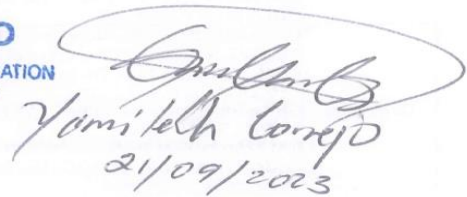 O
ATION
Yamileth Cornejo
21/09/2023